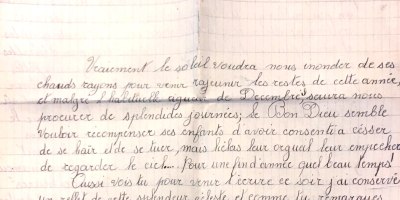 Vraiment le soleil voudra nous inonder de ses
chauds rayons pour venir rajeunir les restes de cette année,
et malgré l'habituelle de Decembre saura nous
procurer de splendides journées; le Bon Dieu semble
vouloir recompenser ses enfants d'avoir consenti à cesser
de se haïr et de se tuer, mais hélas leur orgueil leur empecher
de regarder le ciel... Pour une fin d'année quel beau temps!
Aussi vois tu pour venir t'écrire ce soir j'ai conservé
un reflet de cette splendeur céleste et comme tu remarques